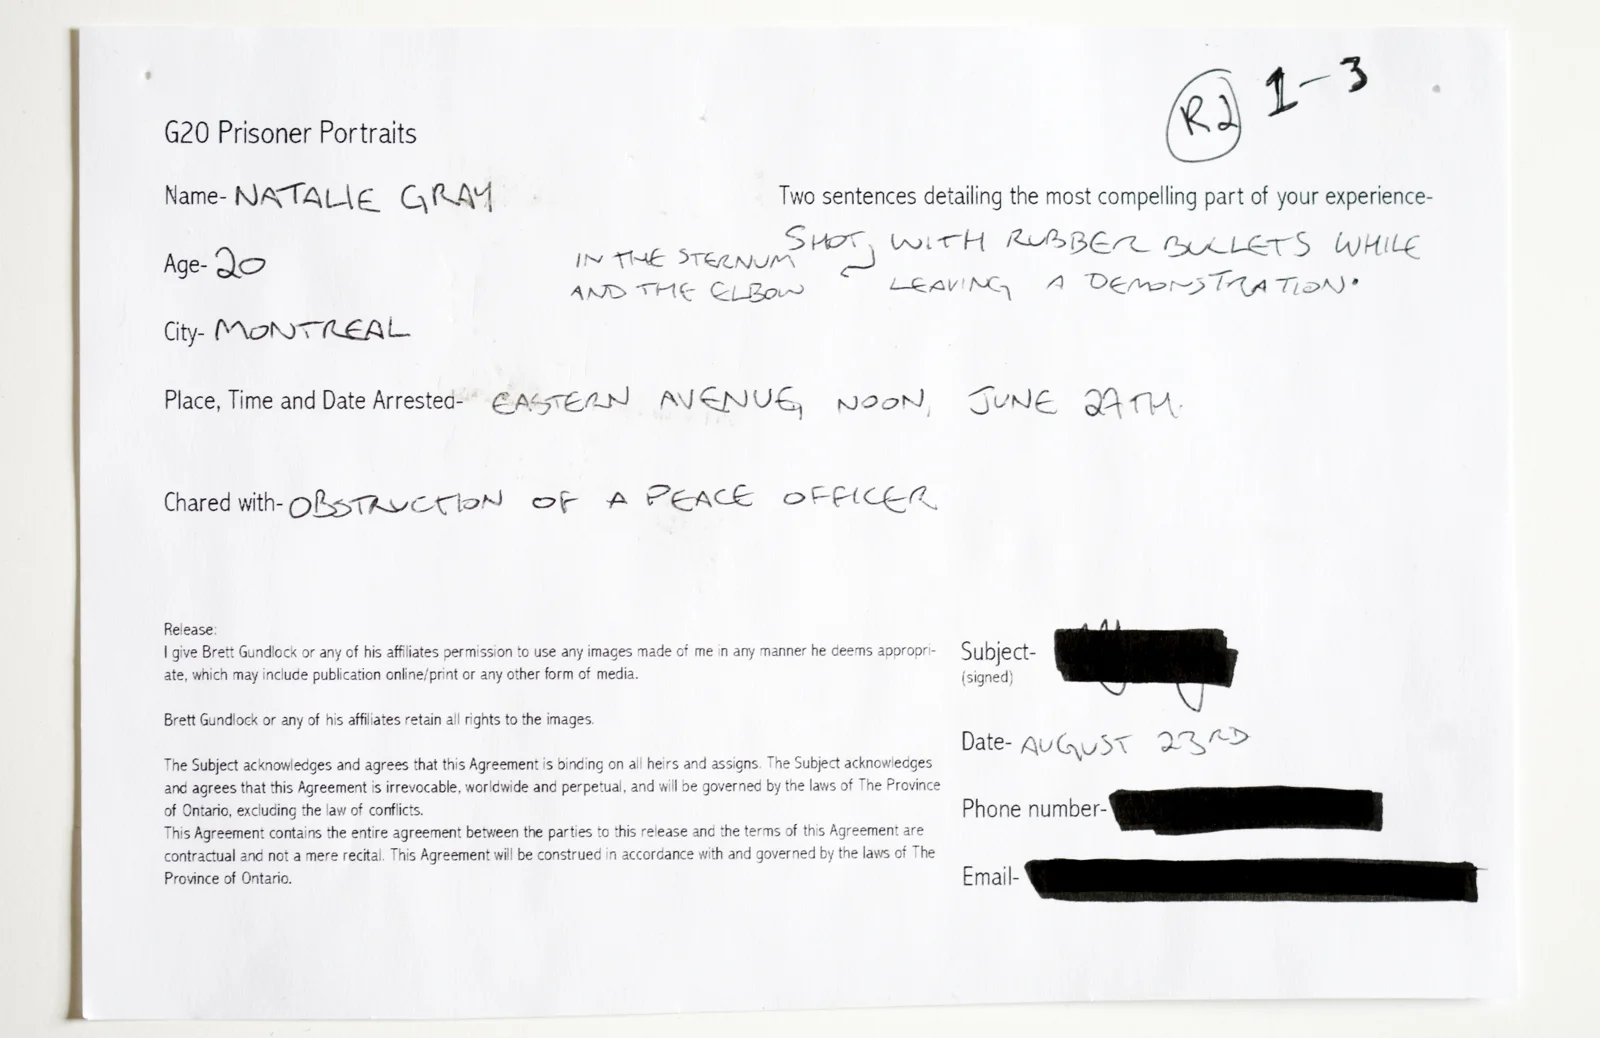 R2 1-3
G20 Prisoner Portraits
Name- NATALIE GRAY
Two sentences detailing the most compelling part of your experience-
SHOT, WITH RUBBER BULLETS WHILE
IN THE STERNUM
AND THE ELBOW
LEAVING A DEMONSTRATION.
Age- 20
City- MONTREAL
Place, Time and Date Arrested- EASTERN AVENUE, NOON, JUNE 27TH.
Chared with- OBSTRUCTION OF A PEACE OFFICER
Release:
I give Brett Gundlock or any of his affiliates permission to use any images made of me in any manner he deems appropri-
ate, which may include publication online/print or any other form of media.
Brett Gundlock or any of his affiliates retain all rights to the images.
The Subject acknowledges and agrees that this Agreement is binding on all heirs and assigns. The Subject acknowledges
and agrees that this Agreement is irrevocable, worldwide and perpetual, and will be governed by the laws of The Province
of Ontario, excluding the law of conflicts.
This Agreement contains the entire agreement between the parties to this release and the terms of this Agreement are
contractual and not a mere recital. This Agreement will be construed in accordance with and governed by the laws of The
Province of Ontario.
Subject-
(signed)
Date- AUGUST 23RD
Phone number-
Email-